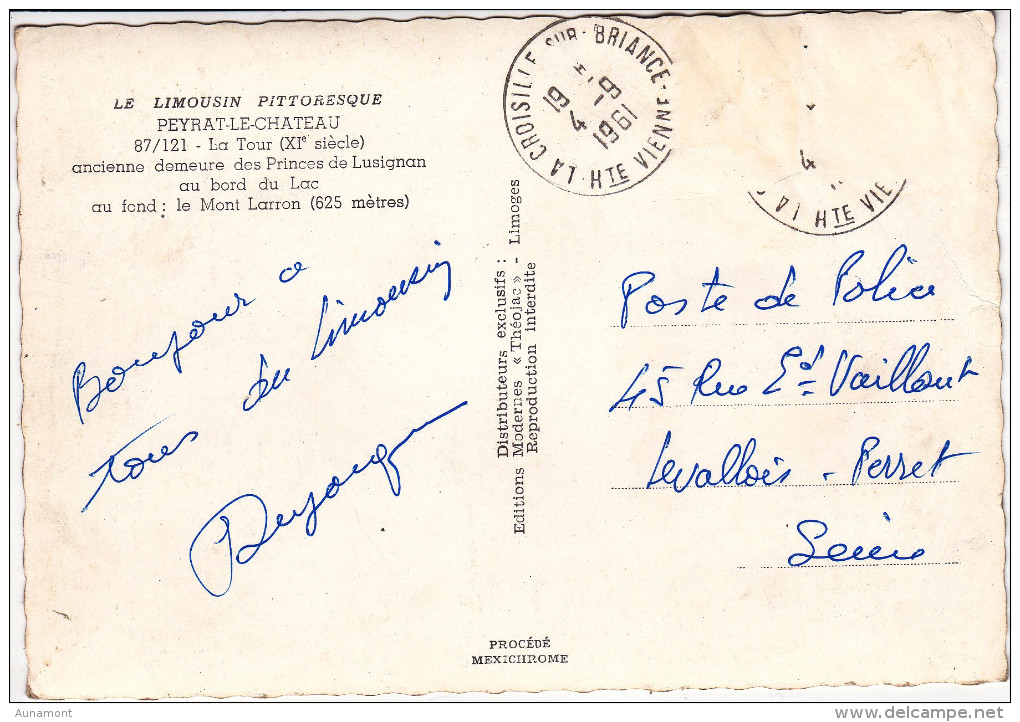 LE LIMOUSIN PITTORESQUE
PEYRAT-LE-CHATEAU
87/121 - La Tour (XIe siècle)
ancienne demeure des Princes de Lusignan
au bord du Lac
au fond : le Mont Larron (625 mètres)
Bonjour à
tous du Limousin
LA CROISILLE SUR BRIANCE HTE VIENNE
19 H
4 - 9
1961
4
LA HTE VIE
Distributeurs exclusifs :
Editions Modernes « Théojac » - Limoges
Reproduction interdite
Poste de Police
45 Rue Ed. Vaillant
Levallois - Perret
Seine
PROCÉDÉ
MEXICHROME
Aunamont
delcampe.net